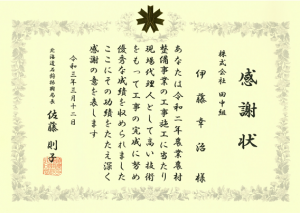 感謝状
株式会社 田中組
伊藤幸治 様
あなたは令和二年度農業農村
整備事業の工事施工に当たり
現場代理人として高い技術
をもって工事の完成に努め
優秀な成績を収められました
ここにその功績をたたえ深く
感謝の意を表します
令和三年三月十二日
北海道石狩振興局長 佐藤則子